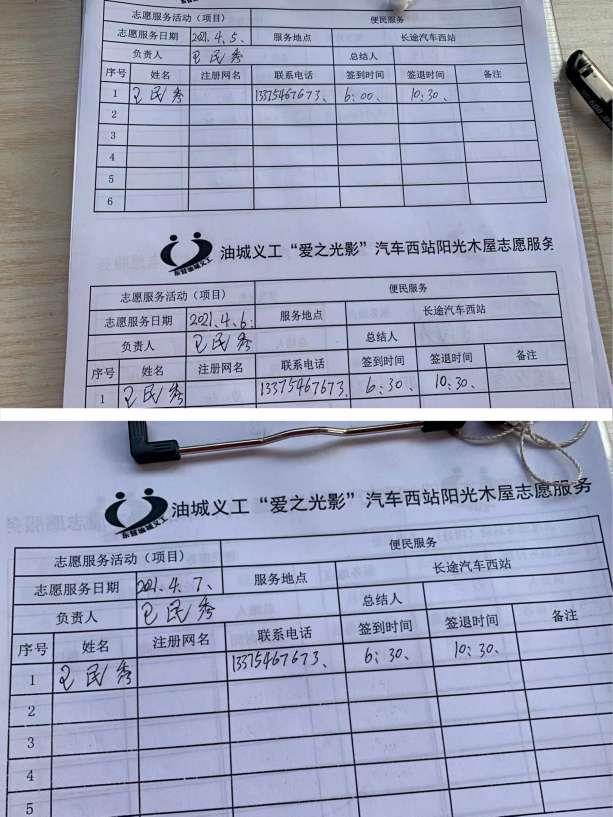 志愿服务活动（项目） 便民服务
志愿服务日期 2021.4.5、 服务地点 长途汽车西站
负责人 卫民秀 总结人
序号 姓名 注册网名 联系电话 签到时间 签退时间 备注
1 卫民秀 13375467673、 6：00、 10：30、
2
3
4
5
6
油城义工“爱之光影”汽车西站阳光木屋志愿服务
志愿服务活动（项目） 便民服务
志愿服务日期 2021.4.6、 服务地点 长途汽车西站
负责人 卫民秀 总结人
序号 姓名 注册网名 联系电话 签到时间 签退时间 备注
1 卫民秀 13375467673、 6：30、 10：30、
油城义工“爱之光影”汽车西站阳光木屋志愿服务
志愿服务活动（项目） 便民服务
志愿服务日期 2021.4.7、 服务地点 长途汽车西站
负责人 卫民秀 总结人
序号 姓名 注册网名 联系电话 签到时间 签退时间 备注
1 卫民秀 13375467673、 6：30、 10：30、
2
3
4
5